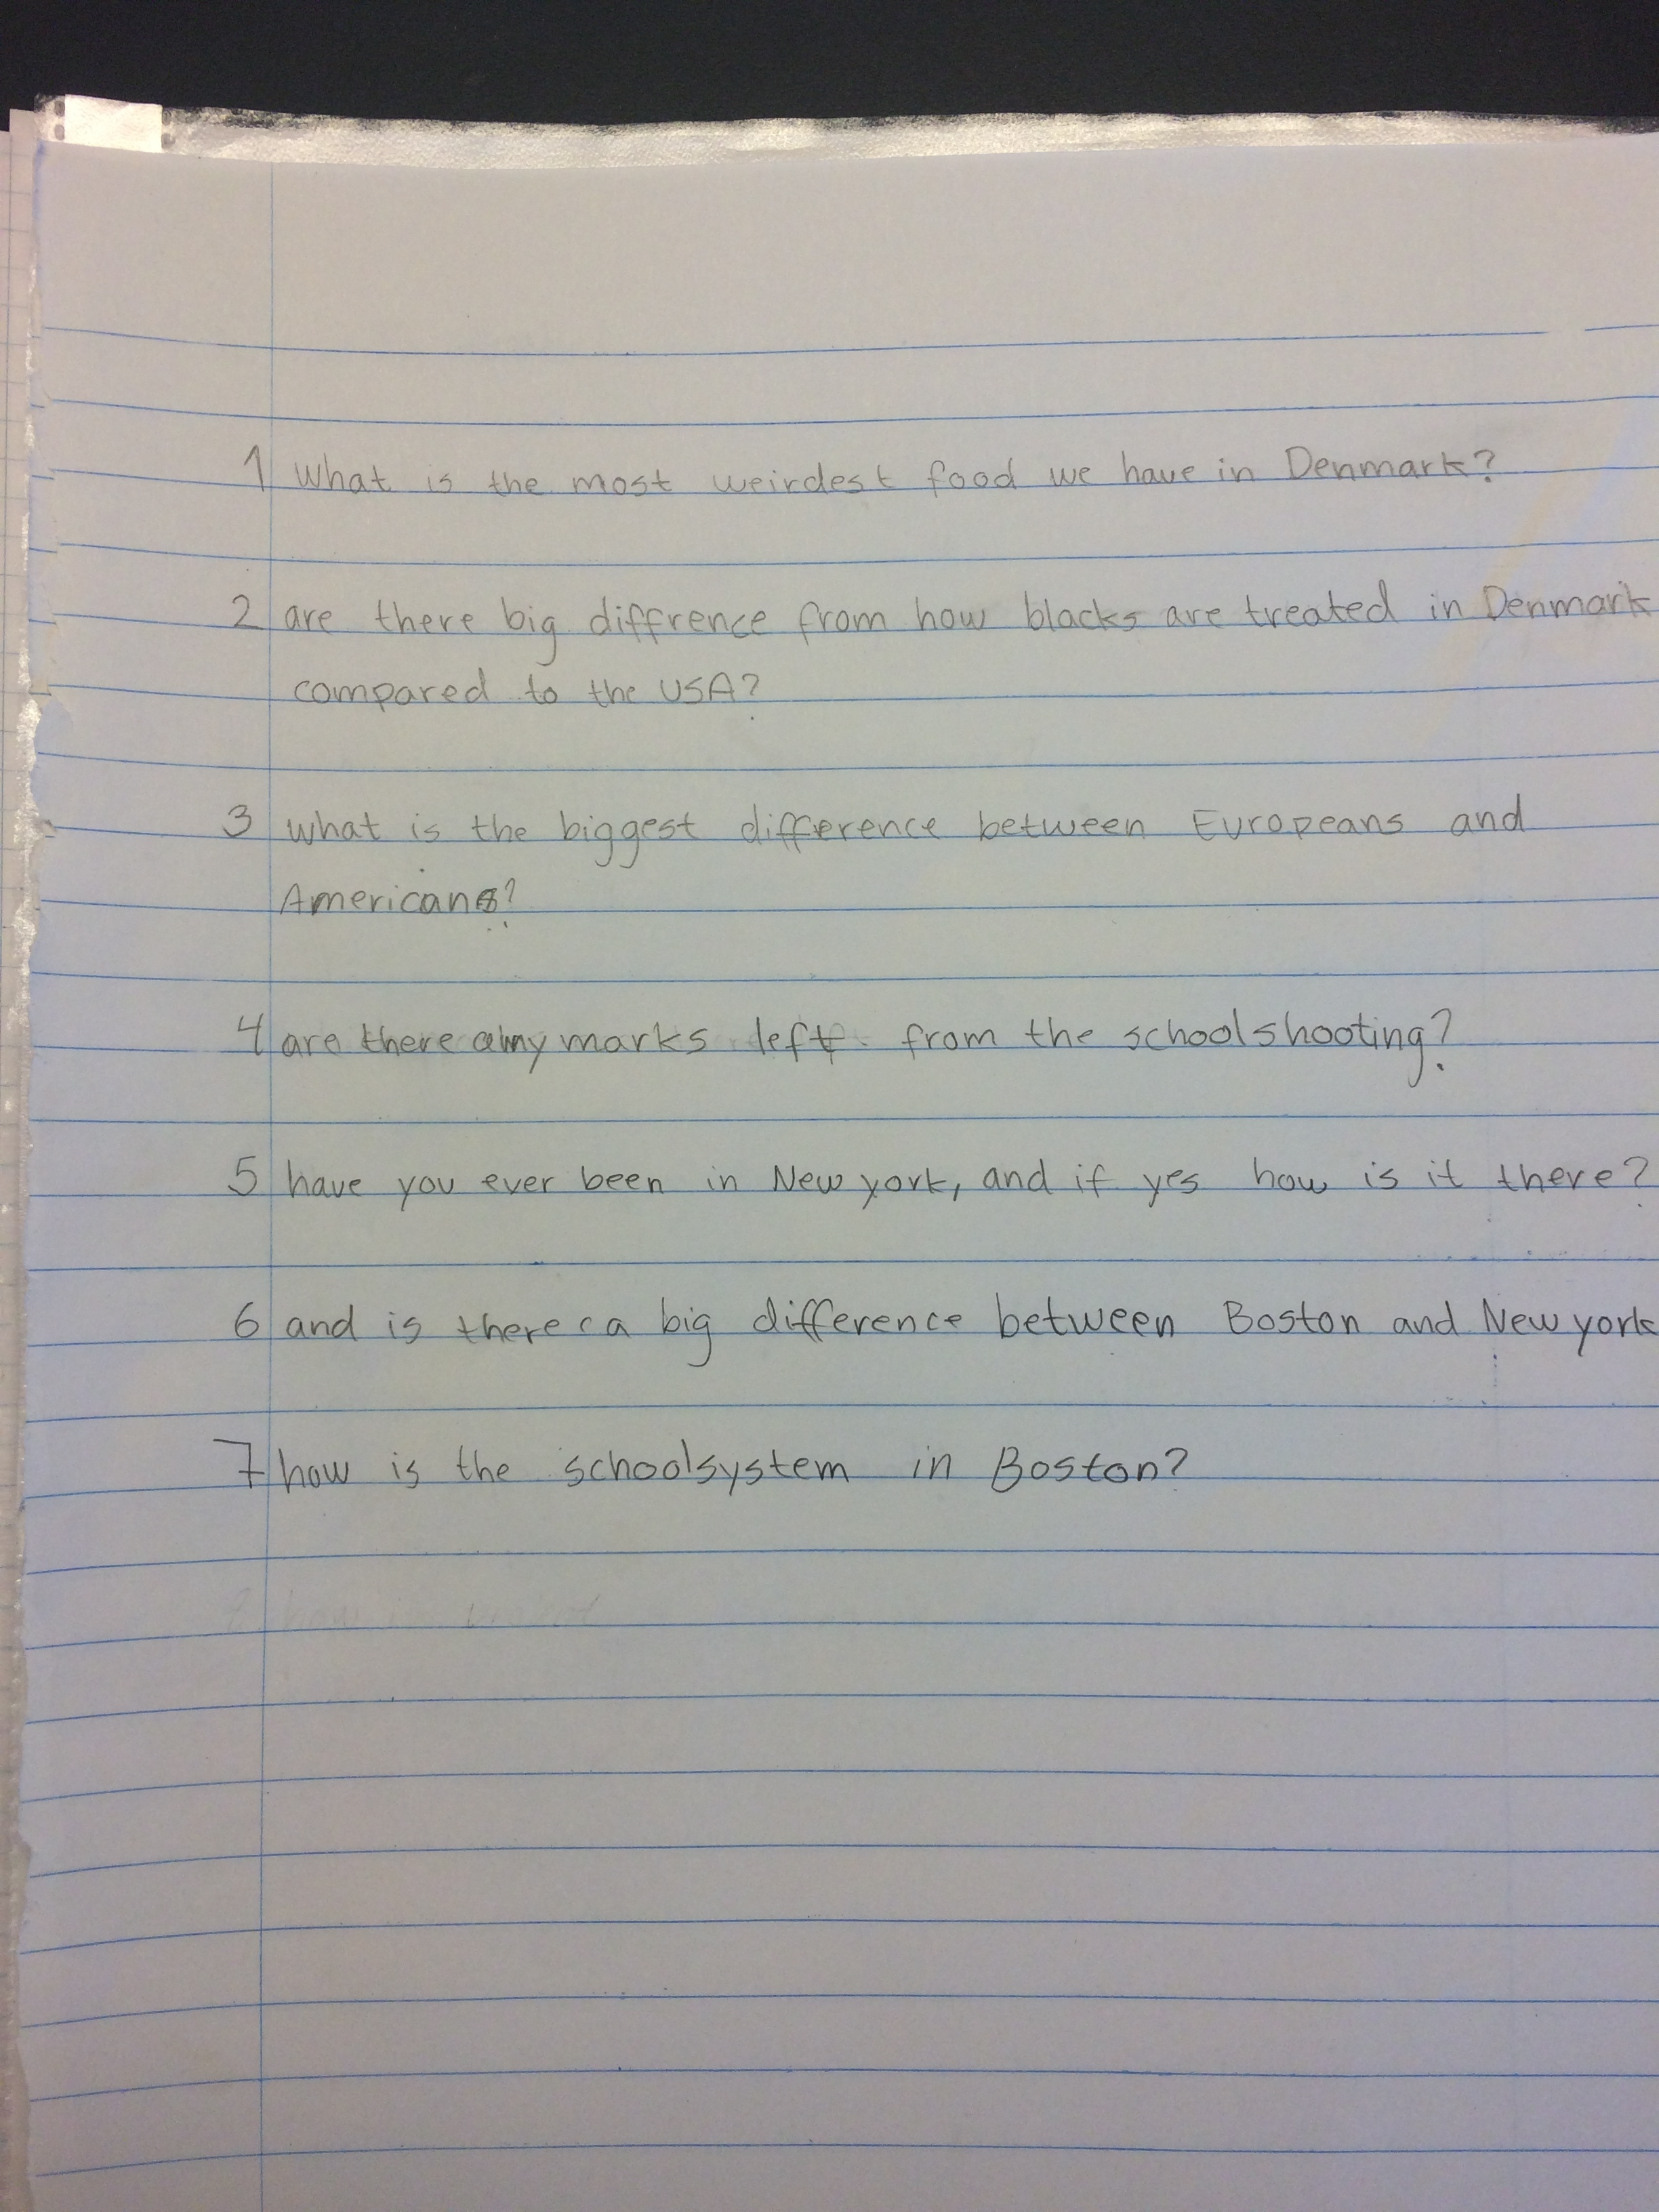 1 What is the most weirdest food we have in Denmark?
2 are there big diffrence from how blacks are treated in Denmark
compared to the USA?
3 what is the biggest difference between Europeans and
Americans?
4 are there any marks left from the schoolshooting?
5 have you ever been in New york, and if yes how is it there?
6 and is there a big difference between Boston and New york
7 how is the schoolsystem in Boston?